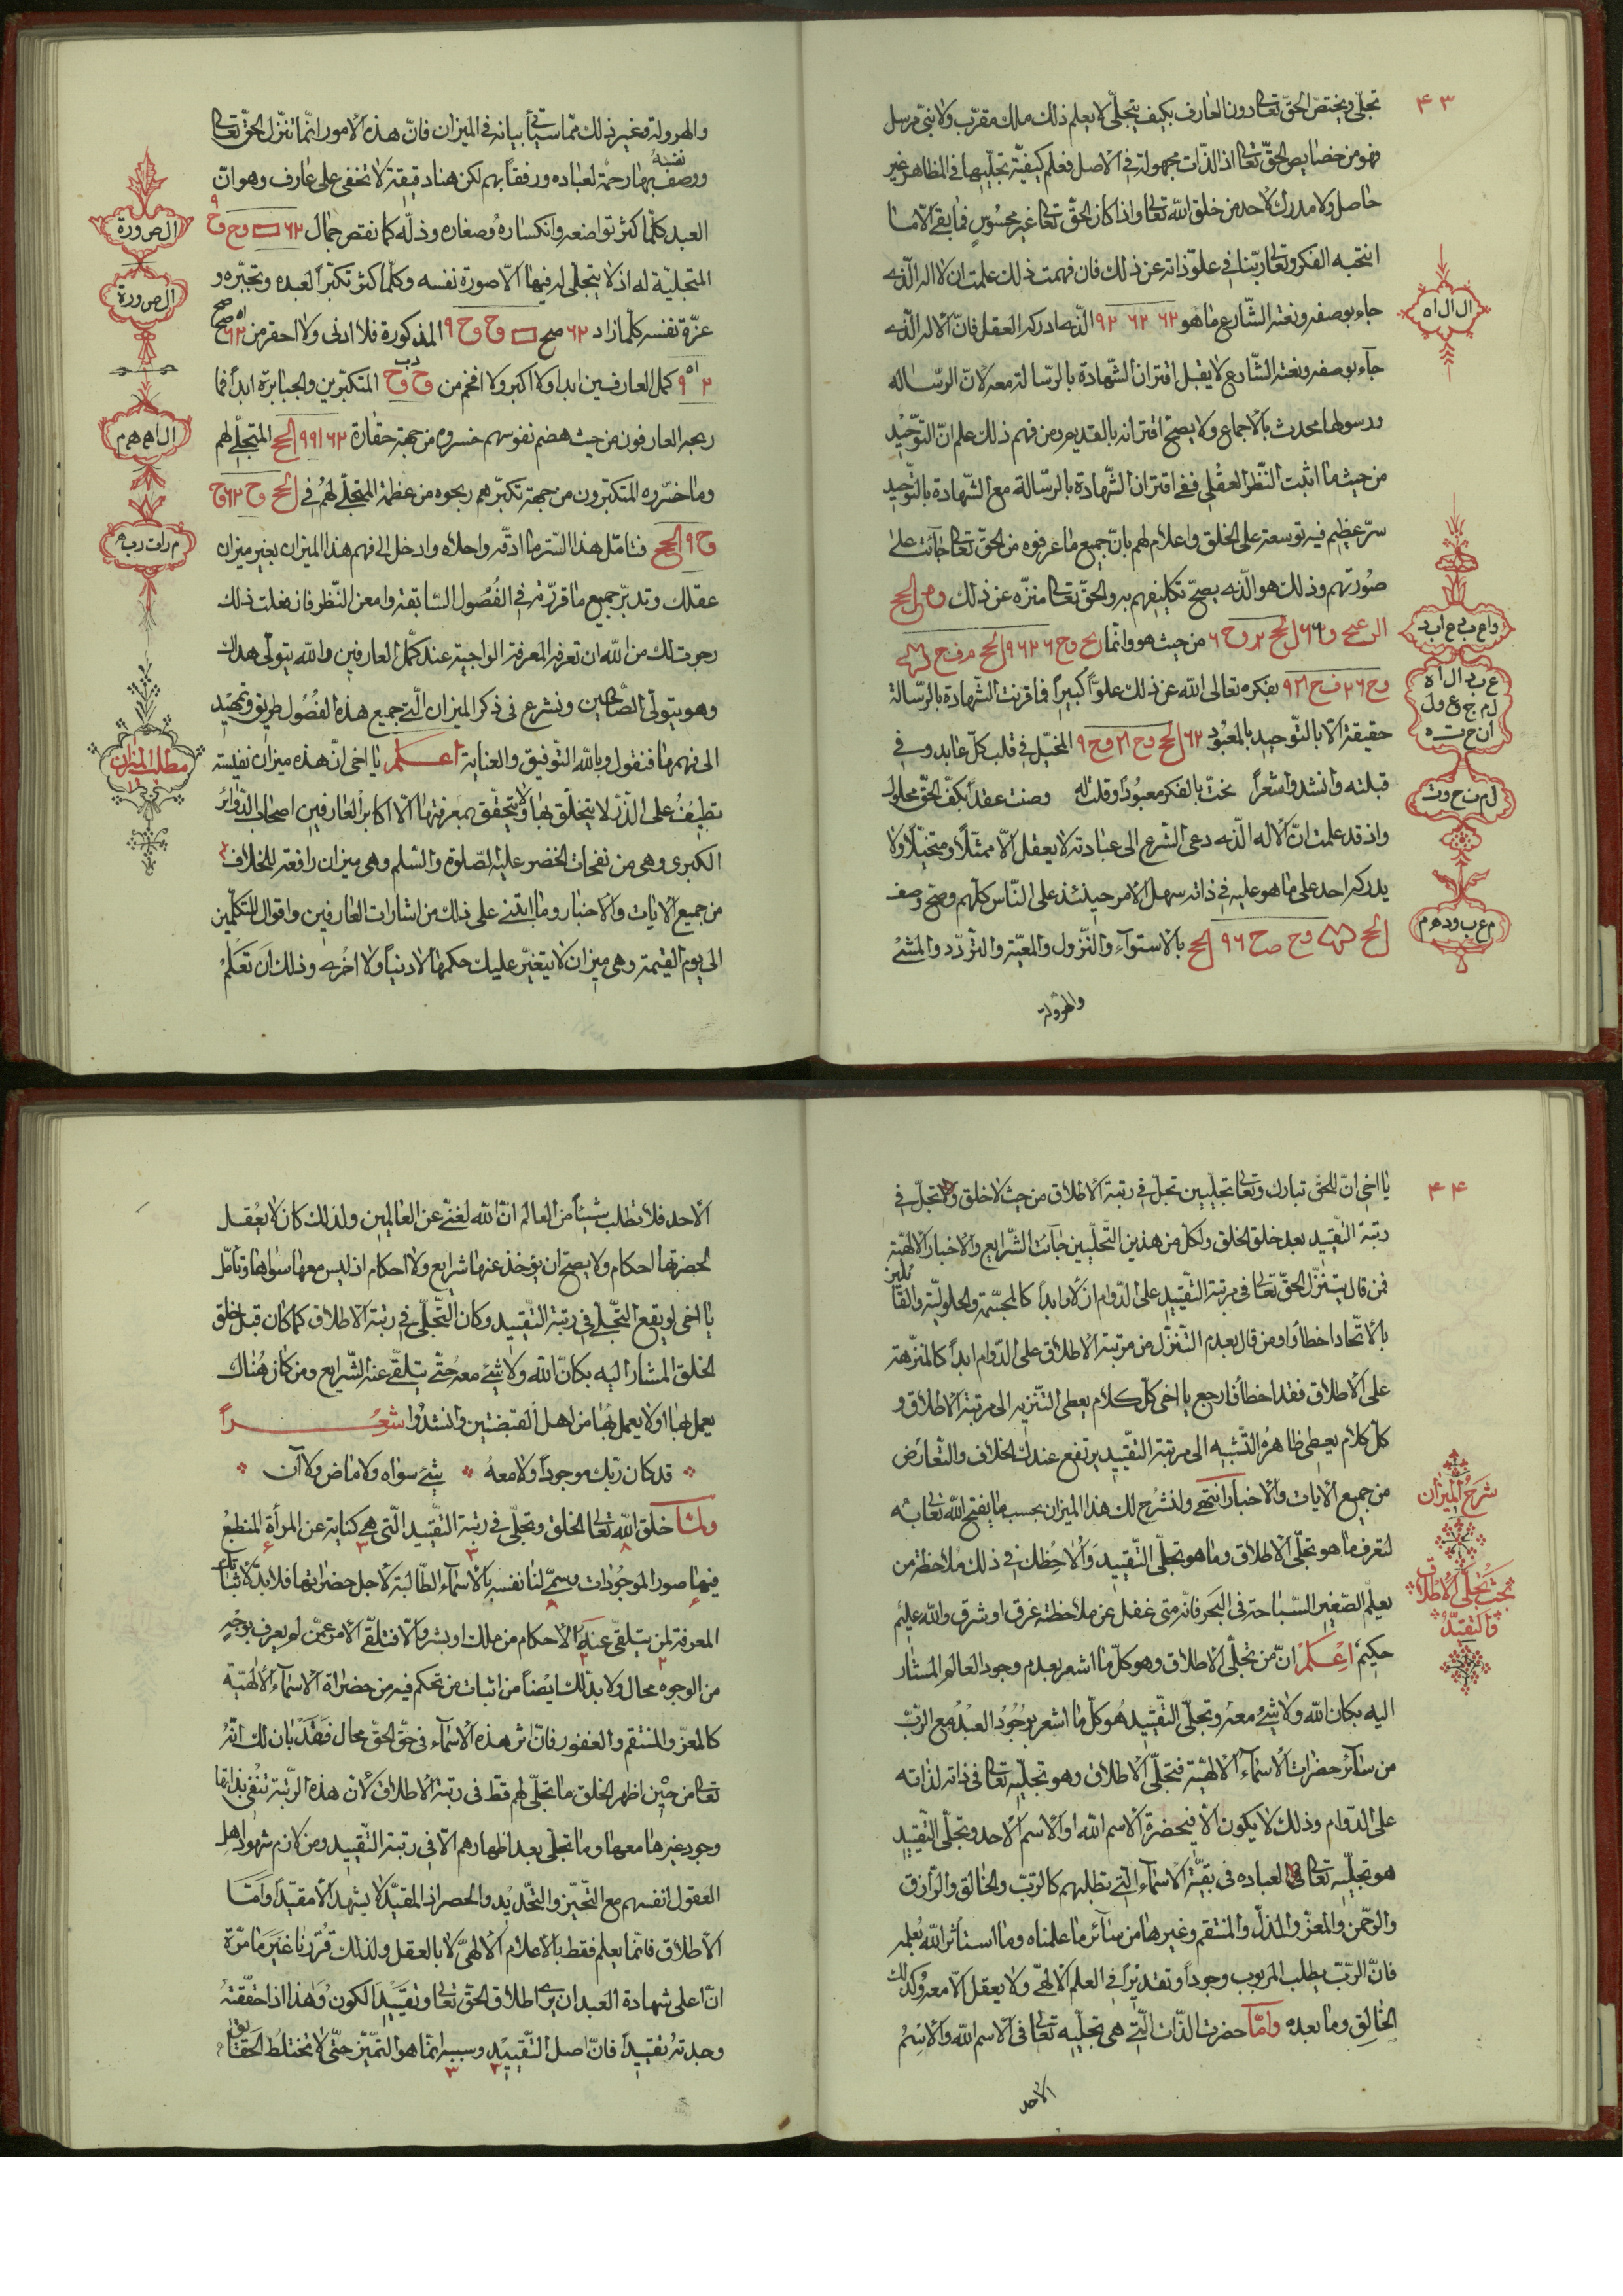 ٤٣
تجلّى ويختصّ الحقّ تعالى دون العارف بكيف يتجلّى لا يعلم ذلك ملك مقرّب ولا نبىّ مرسل
فهو من خصايص الحقّ تعالى اذ الذّات مجهولة فى الاصل فعلم كيفيّة تجلّيها فى المظاهر غير
حاصل ولا مدرك لاحد من خلق الله تعالى واذا كان الحقّ تعالى غير محسوس فما بقى الّا ما
انتجه الفكر وتعالى ربّنا فى علوّ ذاته عن ذلك فان فهمت ذلك علمت ان لا اله الّذى
ال ال اه
جاء بوصفه ونعته الشّارع ما هو الّذى ادركه العقل فانّ الاله الّذى
جآء بوصفه ونعته الشّارع لا يقبل اقتران الشّهادة بالرّسالة معه لانّ الرّسالة
ورسولها محدث بالاجماع ولا يصحّ اقترانه بالقديم ومن فهم ذلك علم انّ التوّحيد
من حيث ما اثبت النّظر العقلى ففى اقتران الشّهادة بالرّسالة مع الشّهادة بالتوّحيد
سرّ عظيم فيه توسعة على الخلق واعلام لهم بانّ جميع ما عرفوه من الحقّ تعالى جآئت على
صورتهم وذلك هو الّذى يصحّ تكليفهم به والحقّ تعالى منزّه عن ذلك
من حيث هو وانّما
بفكره تعالى الله عن ذلك علوّا كبيرا فما قرنت الشّهادة بالرّسالة
حقيقة الّا بالتّوحيد بالمعبود المخيّل فى قلب كلّ عابد وفى
قبلته وانشدوا شعراً نحتّ بالفكر معبوداً وقلت له وصنت عقداً بكفّ الحقّ محلول
واذ قد علمت انّ الاله الّذى دعى الشّرع الى عبادته لا يعقل الّا ممثّلاً ومتخيّلاً ولا
يدركه احد على ما هو عليه فى ذاته سهل الامر حينئذ على النّاس كلّهم وصحّ وصف
بالاستوآء والنّزول والمعيّة والتّردّد والمشى
والهرولة
والهرولة وغير ذلك ممّا سيأتى بيانه فى الميزان فانّ هذه الامور انّما تنزّل الحقّ تعالى
ووصف نفسه بها رحمة لعباده ورفقاً بهم لكن هنا دقيقة لا تخفى على عارف وهو انّ
ال ص ور ة
العبد كلّما كثر تواضعه وانكساره وصغاره وذلّه كما نقص جمال
المتجلّية له اذ لا يتجلّى له فيها الّا صورة نفسه وكلّما كثر تكبّر العبد وتجبّره و
ال ص ور ة
عزّة نفسه كلّما زاد المذكورة فلا ادنى ولا احقر من
كمل العارفين ابدا ولا اكبر ولا افخم من المتكبّرين والجبابرة ابداً فما
ربحه العارفون من حيث هضم نفوسهم خسروه من جهة حقارة المتجلّى لهم
وما خسره المتكبّرون من جهة تكبّرهم ربحوه من عظمة المتجلّى لهم فى
فتامّل هذا السّرّ ما ادقّه واحلاه وادخل الى فهم هذا الميزان بغير ميزان
عقلك وتدبّر جميع ما قرّرته فى الفصول السّابقة وامعن النّظر فان فعلت ذلك
رجوت لك من الله ان تعرفه المعرفة الواجبة عند كمّل العارفين والله يتولّى هداك
وهو يتولّى الصّالحين ونشرع فى ذكر الميزان الّتى جميع هذه الفصول طريق وتمهيد
مطلب الميزان
الى فهمها فنقول وبالله التّوفيق والعناية اعلم يا اخى انّ هذه ميزان نفيسة
تطيف على الذّرّ لا يتخلّق بها ولا يتحقّق بمعرفتها الّا اكابر العارفين اصحاب الدّوائر
الكبرى وهى من نفحات الخضر عليه الصّلوة والسّلم وهى ميزان رافعة للخلاف
من جميع الايات والاخبار وما ابتنى على ذلك من اشارات العارفين واقوال المتكلّمين
الى يوم القيمة وهى ميزان لا يتغيّر عليك حكمها لا دنيا ولا اخرى وذلك ان تعلم
٤٤
يا اخى انّ للحقّ تبارك وتعالى تجلّيين تجلّ فى رتبة الاطلاق من حيث لا خلق وتجلّ فى
رتبة التّقييد بعد خلق الخلق ولكلّ من هذين التّجلّيين جآئت الشّرايع والاخبار الالهيّة
فمن قال بتنزّل الحقّ تعالى فى مرتبة التّقييد على الدّوام ازلا وابداً كالمجسّمة والحلوليّة والقائلين
بالاتّحاد اخطأ ومن قال بعدم التّنزّل من مرتبة الاطلاق على الدّوام ابداً كالمنزّهة
على الاطلاق فقد اخطأ فارجع يا اخى كلّ كلام يعطى التّنزيه الى مرتبة الاطلاق و
كلّ كلام يعطى ظاهره التّشبيه الى مرتبة التّقييد يرتفع عندك الخلاف والتّعارض
شرح الميزان
من جميع الايات والاخبار انتهى ولنشرح لك هذا الميزان بحسب ما يفتح الله تعالى به
لتعرف ما هو تجلّى الاطلاق وما هو تجلّى التّقييد والاحظك فى ذلك ملاحظة من
بحث تجلّى الاطلاق والتقيّد
يعلّم الصّغير السّباحة فى البحر فانّه متى غفل عن ملاحظته غرق او شرق والله عليم
حكيم اعلم انّ من تجلّى الاطلاق وهو كلّ ما اشعر بعدم وجود العالم المشار
اليه بكان الله ولا شئ معه وتجلّى التّقييد هو كلّ ما اشعر بوجود العبد مع الرّبّ
من سآئر حضرات الاسمآء الالهيّة فتجلّى الاطلاق وهو تجلّيه تعالى فى ذاته لذاته
على الدّوام وذلك لا يكون الّا فى حضرة الاسم الله او الاسم الاحد وتجلّى التّقييد
هو تجلّيه تعالى لعباده فى بقيّة الاسمآء الّتى تطلبهم كالرّبّ والخالق والرّازق
والرّحمن والمعزّ والمذلّ والمنتقم وغيرها من سآئر ما علمناه وما استأثر الله بعلمه
فانّ الرّبّ يطلب المربوب وجوداً وتقديراً فى العلم الالهىّ ولا يعقل الّا معه وكذلك
الخالق وما بعده وامّا حضرت الذّات الّتى هى تجلّيه تعالى فى الاسم الله والاسم
الاحد
الاحد فلا تطلب شيئاً من العالم انّ الله لغنىّ عن العالمين ولذلك كان لا يعقل
لحضرتها احكام ولا يصحّ ان يؤخذ عنها شرايع ولا احكام اذ ليس معها سواها وتأمّل
يا اخى لو يقع التّجلّى فى رتبة التّقييد وكان التّجلّى فى رتبة الاطلاق كما كان قبل خلق
الخلق المشار اليه بكان الله ولا شئ معه حتّى يتلقّى عنه الشّرايع ومن كان هناك
يعمل بها او لا يعمل بها من اهل القبضتين وانشدوا شعراً
قد كان ربّك موجوداً ولا معه شئ سواه ولا ماض ولا آن
ولمّا خلق الله تعالى الخلق وتجلّى فى رتبة التّقييد الّتى هى كناية عن المرأة المنطبع
فيها صور الموجودات وسمّى لنا نفسه بالاسمآء الطّالبة لاجل حضراتها فلا بدّ لاثبات
المعرفة لمن يتلقّى عنه الاحكام من ملك او بشر والّا فتلقّى الامر عمّن لم يعرف بوجه
من الوجوه محال ولا بدّ لك ايضاً من اثبات من تحكم فيه من حضرات الاسمآء الالهيّة
كالمعزّ والمنتقم والغفور فانّ اثر هذه الاسمآء فى حقّ الحقّ محال فقد بان لك انّه
تعالى من حين اظهر الخلق ما تجلّى لهم قطّ فى رتبة الاطلاق لانّ هذه الرّتبة تنفى بذاتها
وجود غيرها معها وما تجلّى بعد اظهارهم الّا فى رتبة التّقييد ومن لازم شهود اهل
العقول انفسهم مع التّحيّز والتّحديد والحصر اذ المقيّد لا يشهد الّا مقيّداً وامّا
الاطلاق فانّما يعلم فقط بالاعلام الالهىّ لا بالعقل ولذلك قرّرنا غير ما مرّة
انّ اعلى شهادة العبد ان يرى اطلاق الحقّ تعالى وتقييد الكون وهذا اذا حقّقته
وجدته تقييداً فانّ اصل التّقييد وسببه انّما هو التّميّز حتّى لا تختلط الحقايق